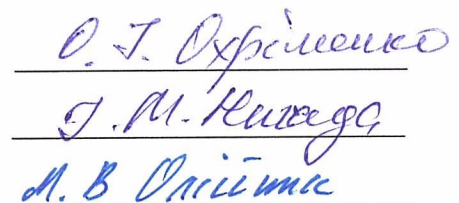 О. Г. Охріменко
Г. М. Нигада
М. В Олійник